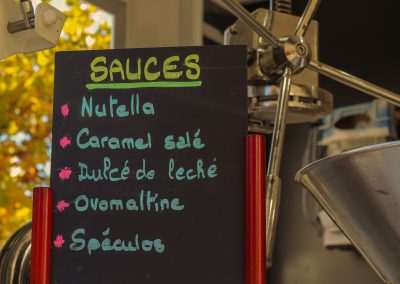 SAUCES
Nutella
Caramel salé
Dulcé de leché
Ovomaltine
Spéculos